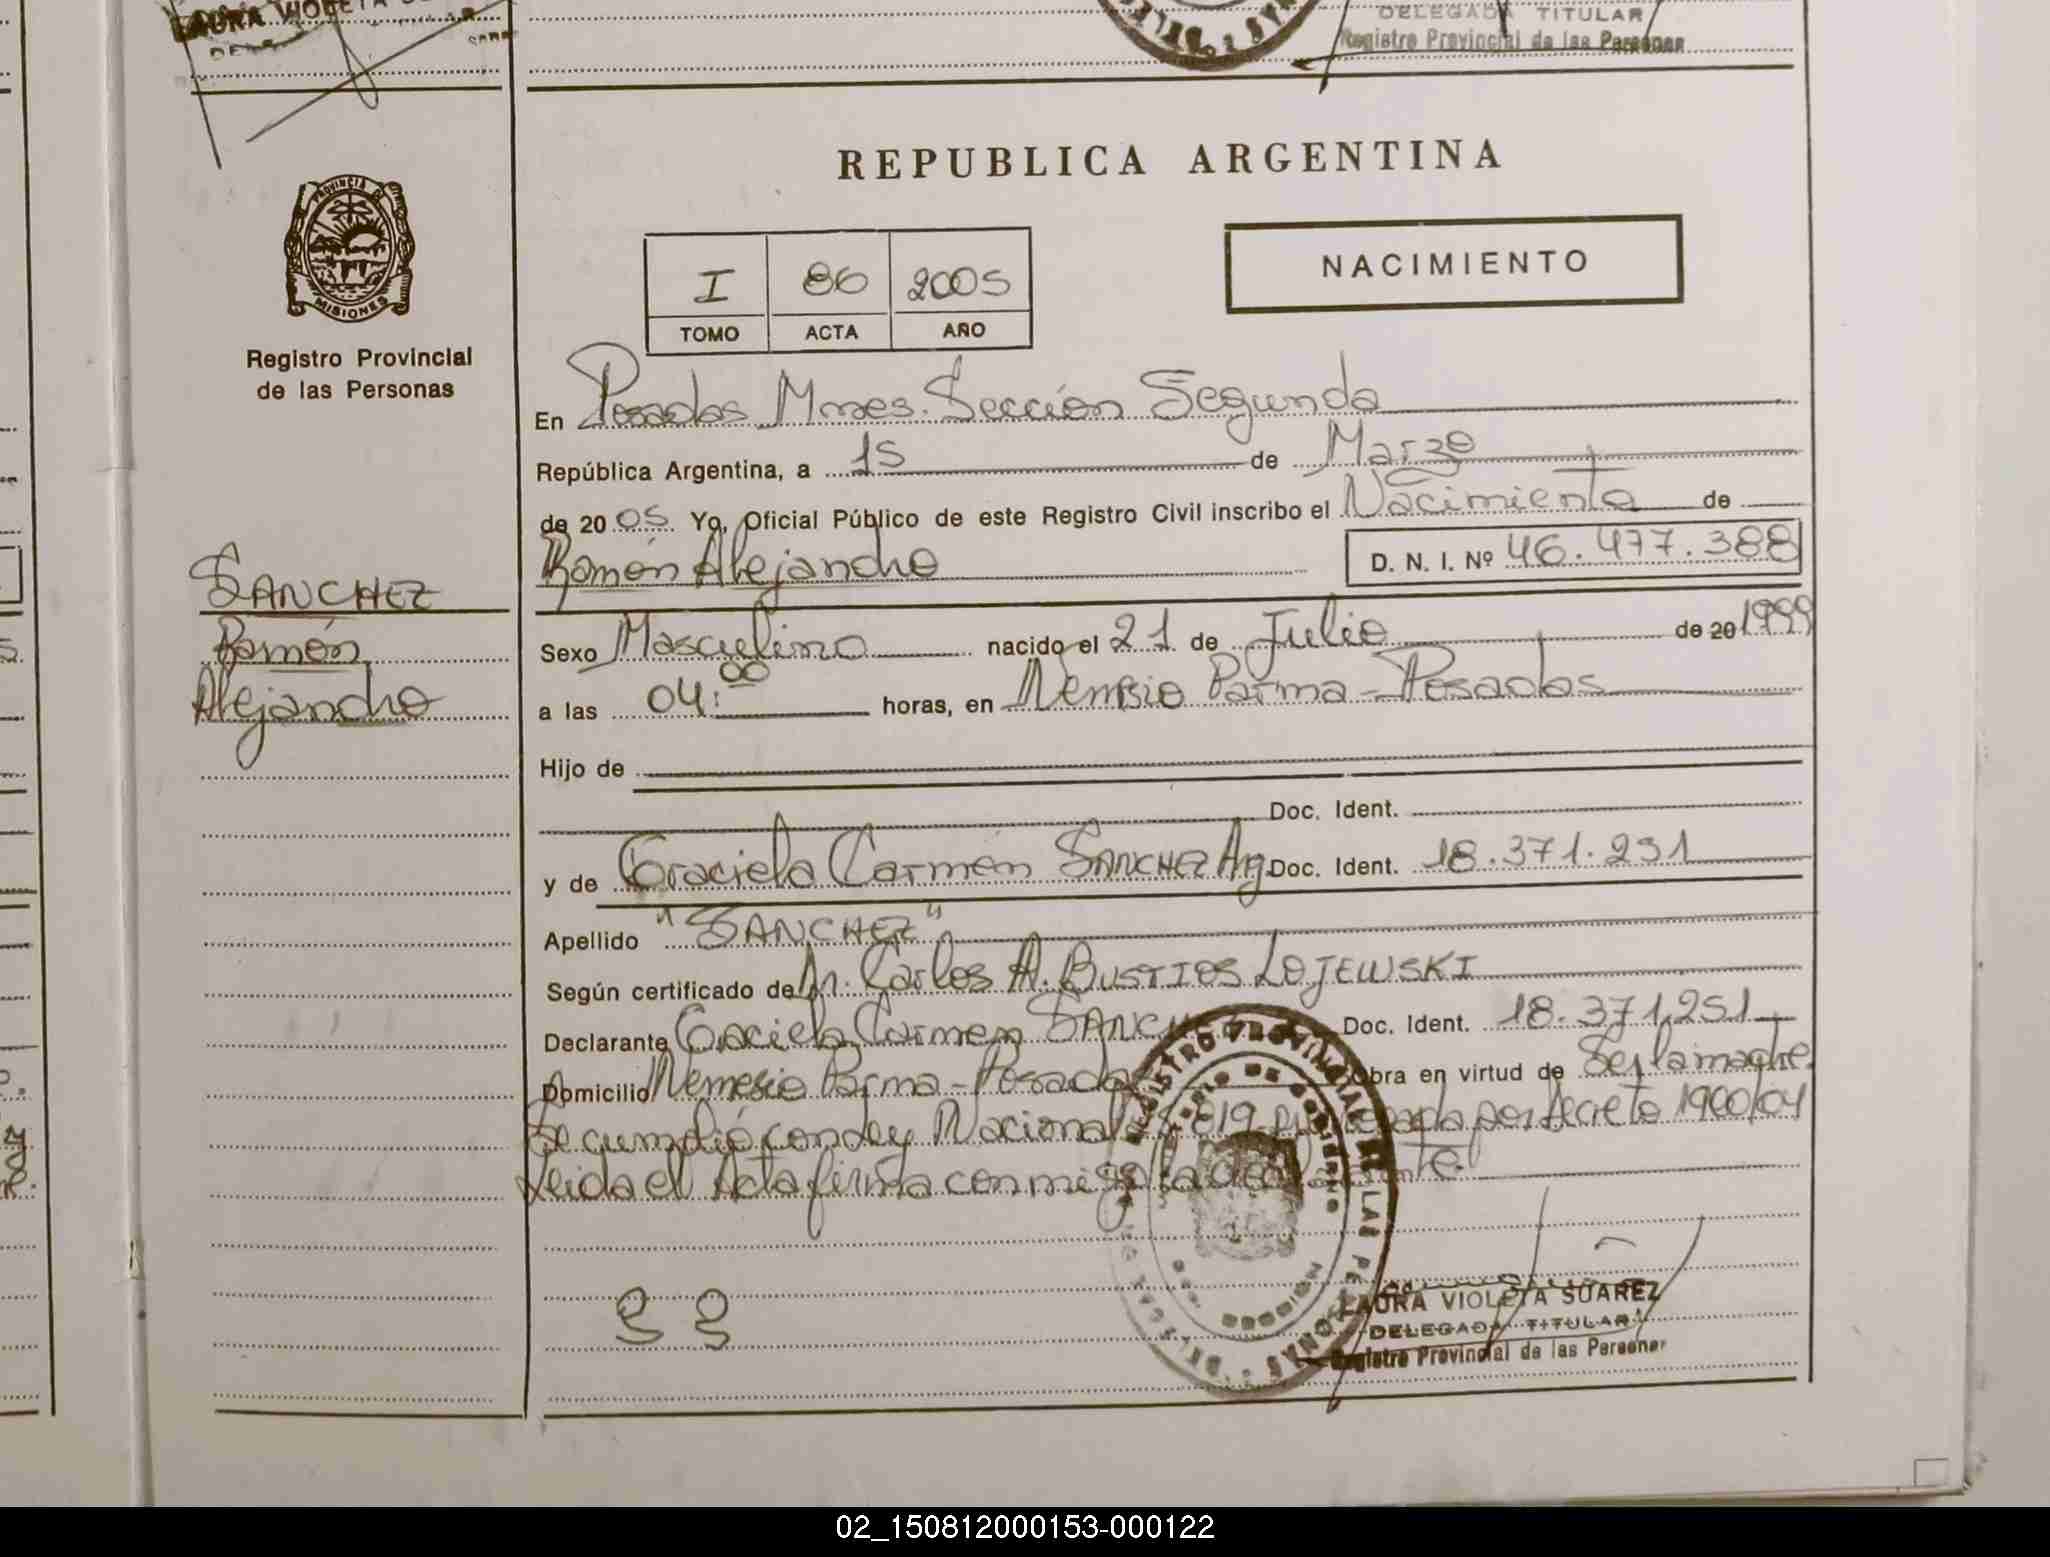 LAURA VIOLETA
DELEGADA TITULAR
Registro Provincial de las Personas
REPUBLICA ARGENTINA
PROVINCIA DE
MISIONES
Registro Provincial
de las Personas
I 86 2005
TOMO ACTA AÑO
NACIMIENTO
En Posadas Mnes. Sección Segunda
República Argentina, a 15 de Marzo
de 2005 Yo, Oficial Público de este Registro Civil inscribo el Nacimiento de
Ramón Alejandro D. N. I. Nº 46.477.388
SANCHEZ
Ramón
Alejandro
Sexo Masculino nacido el 21 de Julio de 20 1999
a las 04:00 horas, en Nemesio Parma - Posadas
Hijo de
Doc. Ident.
y de Graciela Carmen SANCHEZ Arg. Doc. Ident. 18.371.251
Apellido "SANCHEZ"
Según certificado de Dr. Carlos A. BUSTIOS LOJEWSKI
Declarante Graciela Carmen SANCHEZ Doc. Ident. 18.371.251
Domicilio Nemesio Parma - Posadas Obra en virtud de Ser la madre.
Se cumplió con Ley Nacional por decreto 1900/04
Leida el Acta firma conmigo la declarante.
REGISTRO PROVINCIAL DE LAS PERSONAS
MISIONES
LAURA VIOLETA SUAREZ
DELEGADA TITULAR
Registro Provincial de las Personas
02_150812000153-000122